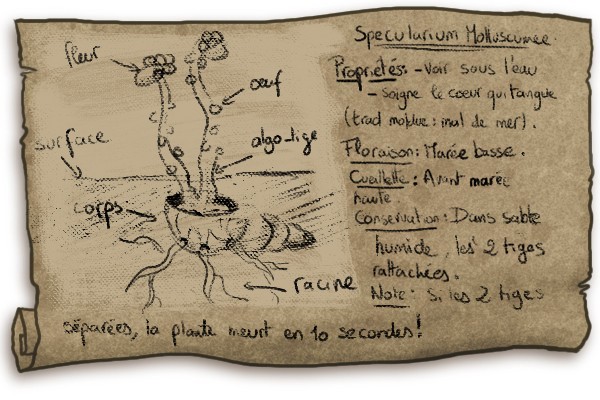 fleur
œuf
algo-tige
surface
corps
racine
Specularium Molluscumee
Propriétés: - Voir sous l'eau
- Soigne le cœur qui tangue
(trad moldue : mal de mer).
Floraison: Marée basse.
Cueillette: Avant marée
haute.
Conservation: Dans sable
humide, les 2 tiges
rattachées.
Note: Si les 2 tiges
séparées, la plante meurt en 10 secondes!